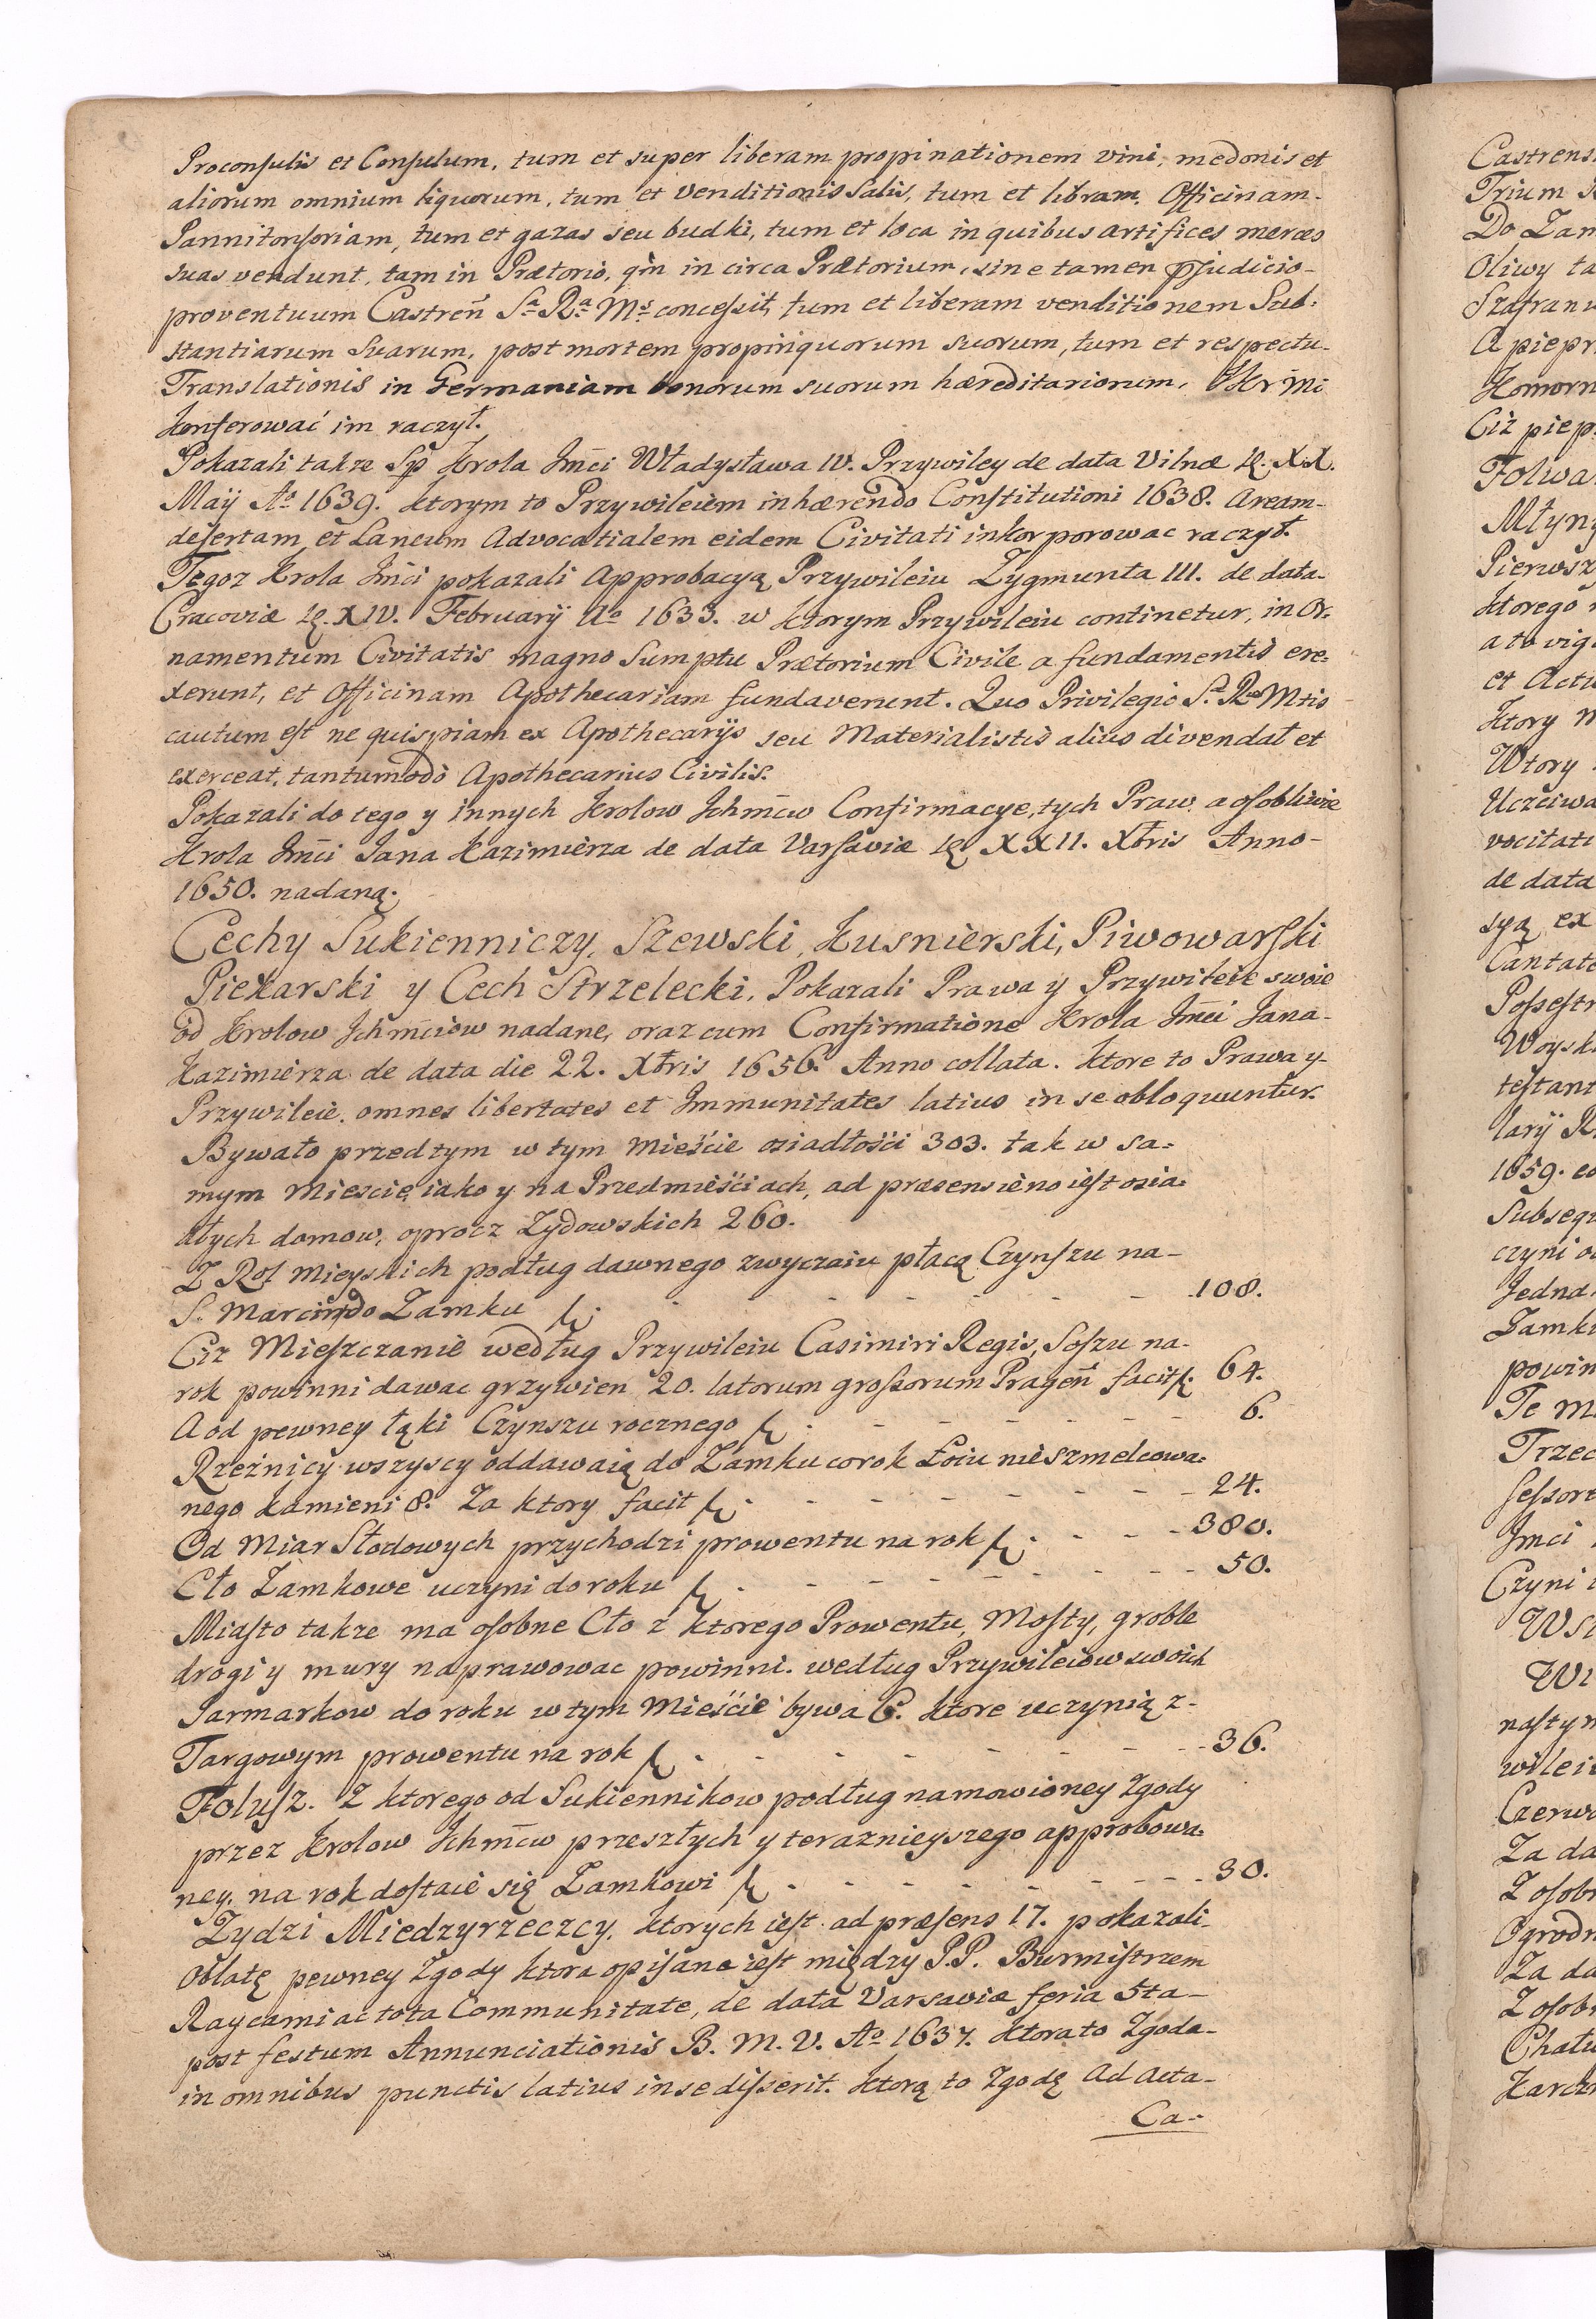 Proconsulis et Consulum, tum et super liberam propinationem vini, medonis et
aliorum omnium liquorum, tum et venditionis Salis, tum et libram, Officinam-
Pannitonsoriam, tum et gazas seu budki, tum et loca in quibus artifices merces
suas vendunt, tam in Prætorio, qm in circa Prætorium, sine tamen pjudicio-
proventuum Castren̄ Sa Ra Ms concessit, tum et liberam venditionem Sub:
stantiarum Suarum, post mortem propinquorum suorum, tum et respectu-
Translationis in Germaniam bonorum suorum hæreditariorum,
konferować im raczył.
Pokazali takze Sp Krola Jm̄ci Władysława IV. Przywiley de data Vilnæ XX.
Maÿ Ao 1639. ktorym to Przywileiem inhærendo Constitutioni 1638. Aream-
desertam et Laneum Advocatialem eidem Civitati inkorporowac raczył.
Tegoz Krola Jm̄ci pokazali Approbacyą Przywileiu Zygmunta III. de data-
Cracoviæ XIV. Februarÿ Ao 1633. w ktorym Przywileiu continetur, in Or:
namentum Civitatis magno Sumptu Prætorium Civile a fundamentis ere:
xerunt, et Officinam Apothecariam fundaverunt. Quo Privilegio S. Mtis
cautum est ne quispiam ex Apothecarÿs seu Materialistis alius divendat et
exerceat, tantumodò Apothecarius Civilis.
Pokazali do tego y innych Krolow Ichm̄cw Confirmacye, tych Praw, a osobliwie
Krola Jm̄ci Jana Kazimierza de data Varsaviæ XXII. Xbris Anno-
1650. nadaną.
Cechy Sukienniczy, Szewski, Kusnierski, Piwowarski
Piekarski y Cech Strzelecki, Pokazali Prawa y Przywileie swoie
od Krolow Ichm̄ciow nadane, oraz cum Confirmatione Krola Jm̄ci Jana-
Kazimierza de data die 22. Xbris 1650. Anno collata. ktore to Prawa y
Przywileie, omnes libertates et Immunitates latius in se obloquuntur.
Bywało przedtym w tym Mieście osiadłości 303. tak w sa-
mym Miescie, iako y na Przedmieściach, ad præsens ieno iest osia:
dłych domow, oprocz Zydowskich 260.
Z Rol Mieyskich podług dawnego zwyczaiu płacą Czynszu na-
S. Marcin do Zamku f. - - - - - - - 108.
Ciz Mieszczanie według Przywileiu Casimiri Regis, Soszu na-
rok powinni dawac grzywien 20. latorum grossorum Pragen̄ facit f. 64.
A od pewney łąki Czynszu rocznego f. - - - - - - - 6.
Rzeźnicy wszyscy oddawaią do Zamku co rok Łoiu nieszmelcowa:
nego kamieni 8. Za ktory facit f. - - - - - - - 24.
Od Miar Słodowych przychodzi prowentu na rok f. - - - - 380.
Cło Zamkowe uczyni do roku f. - - - - - - - - 50.
Miasto takze ma osobne Cło z ktorego Prowentu, Mosty, groble
drogi y mury naprawowac powinni. według Przywileiow swoich
Jarmarkow do roku w tym Mieście bywa 6. ktore uczynią z-
Targowym prowentu na rok f. - - - - - - - - 36.
Folusz. Z ktorego od Sukiennikow podług namowioney Zgody
przez Krolow Ichm̄cw przeszłych y teraznieyszego approbowa:
ney, na rok dostaie się Zamkowi f. - - - - - - - 30.
Zydzi Miedzyrzeczcy, ktorych iest ad præsens 17. pokazali-
Oblatę pewney Zgody ktora opisana iest między P.P. Burmistrzem
Raycami ac tota Communitate, de data Varsaviæ feria 5ta-
post festum Annunciationis B. M. V. Ao 1637. ktora to Zgoda-
in omnibus punctis latius in se disserit. ktorą to Zgodę Ad Acta-
Ca-